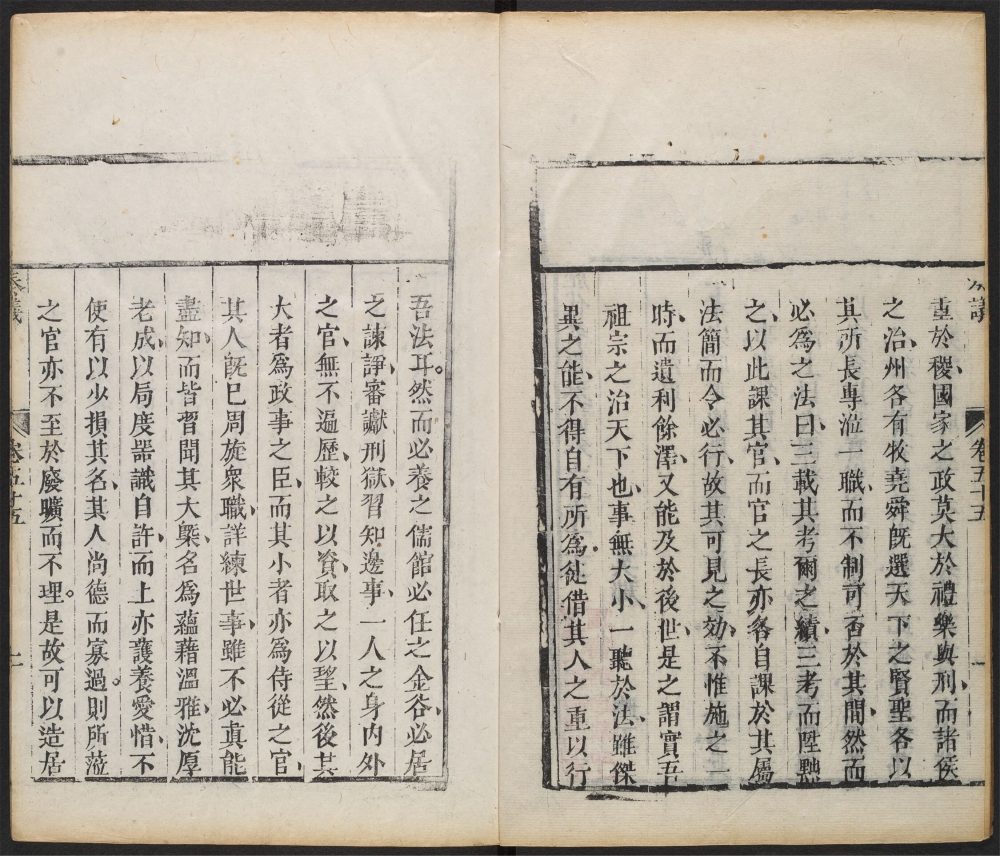 奏議 卷五十五 一
重於稷國家之政莫大於禮樂與刑而諸侯
之治州各有牧堯舜旣選天下之賢聖各以
其所長專涖一職而不制可否於其間然而
必爲之法曰三載其考爾之績三考而陞黜
之以此課其官而官之長亦各自課於其屬
法簡而令必行故其可見之効不惟施之一
時而遺利餘澤又能及於後世是之謂實吾
祖宗之治天下也事無大小一聽於法雖傑
異之能不得自有所爲徒借其人之重以行
吾法耳然而必養之儒館必任之金谷必居
之諫諍審讞刑獄習知邊事一人之身內外
之官無不遍歷較之以資取之以望然後其
大者爲政事之臣而其小者亦爲侍從之官
其人旣已周旋衆職詳練世事雖不必眞能
盡知而皆習聞其大槩名爲蘊藉溫雅沈厚
老成以局度器識自許而上亦護養愛惜不
使有以少損其名其人尚德而寡過則所涖
之官亦不至於廢曠而不理是故可以造居
奏議 卷五十五 二